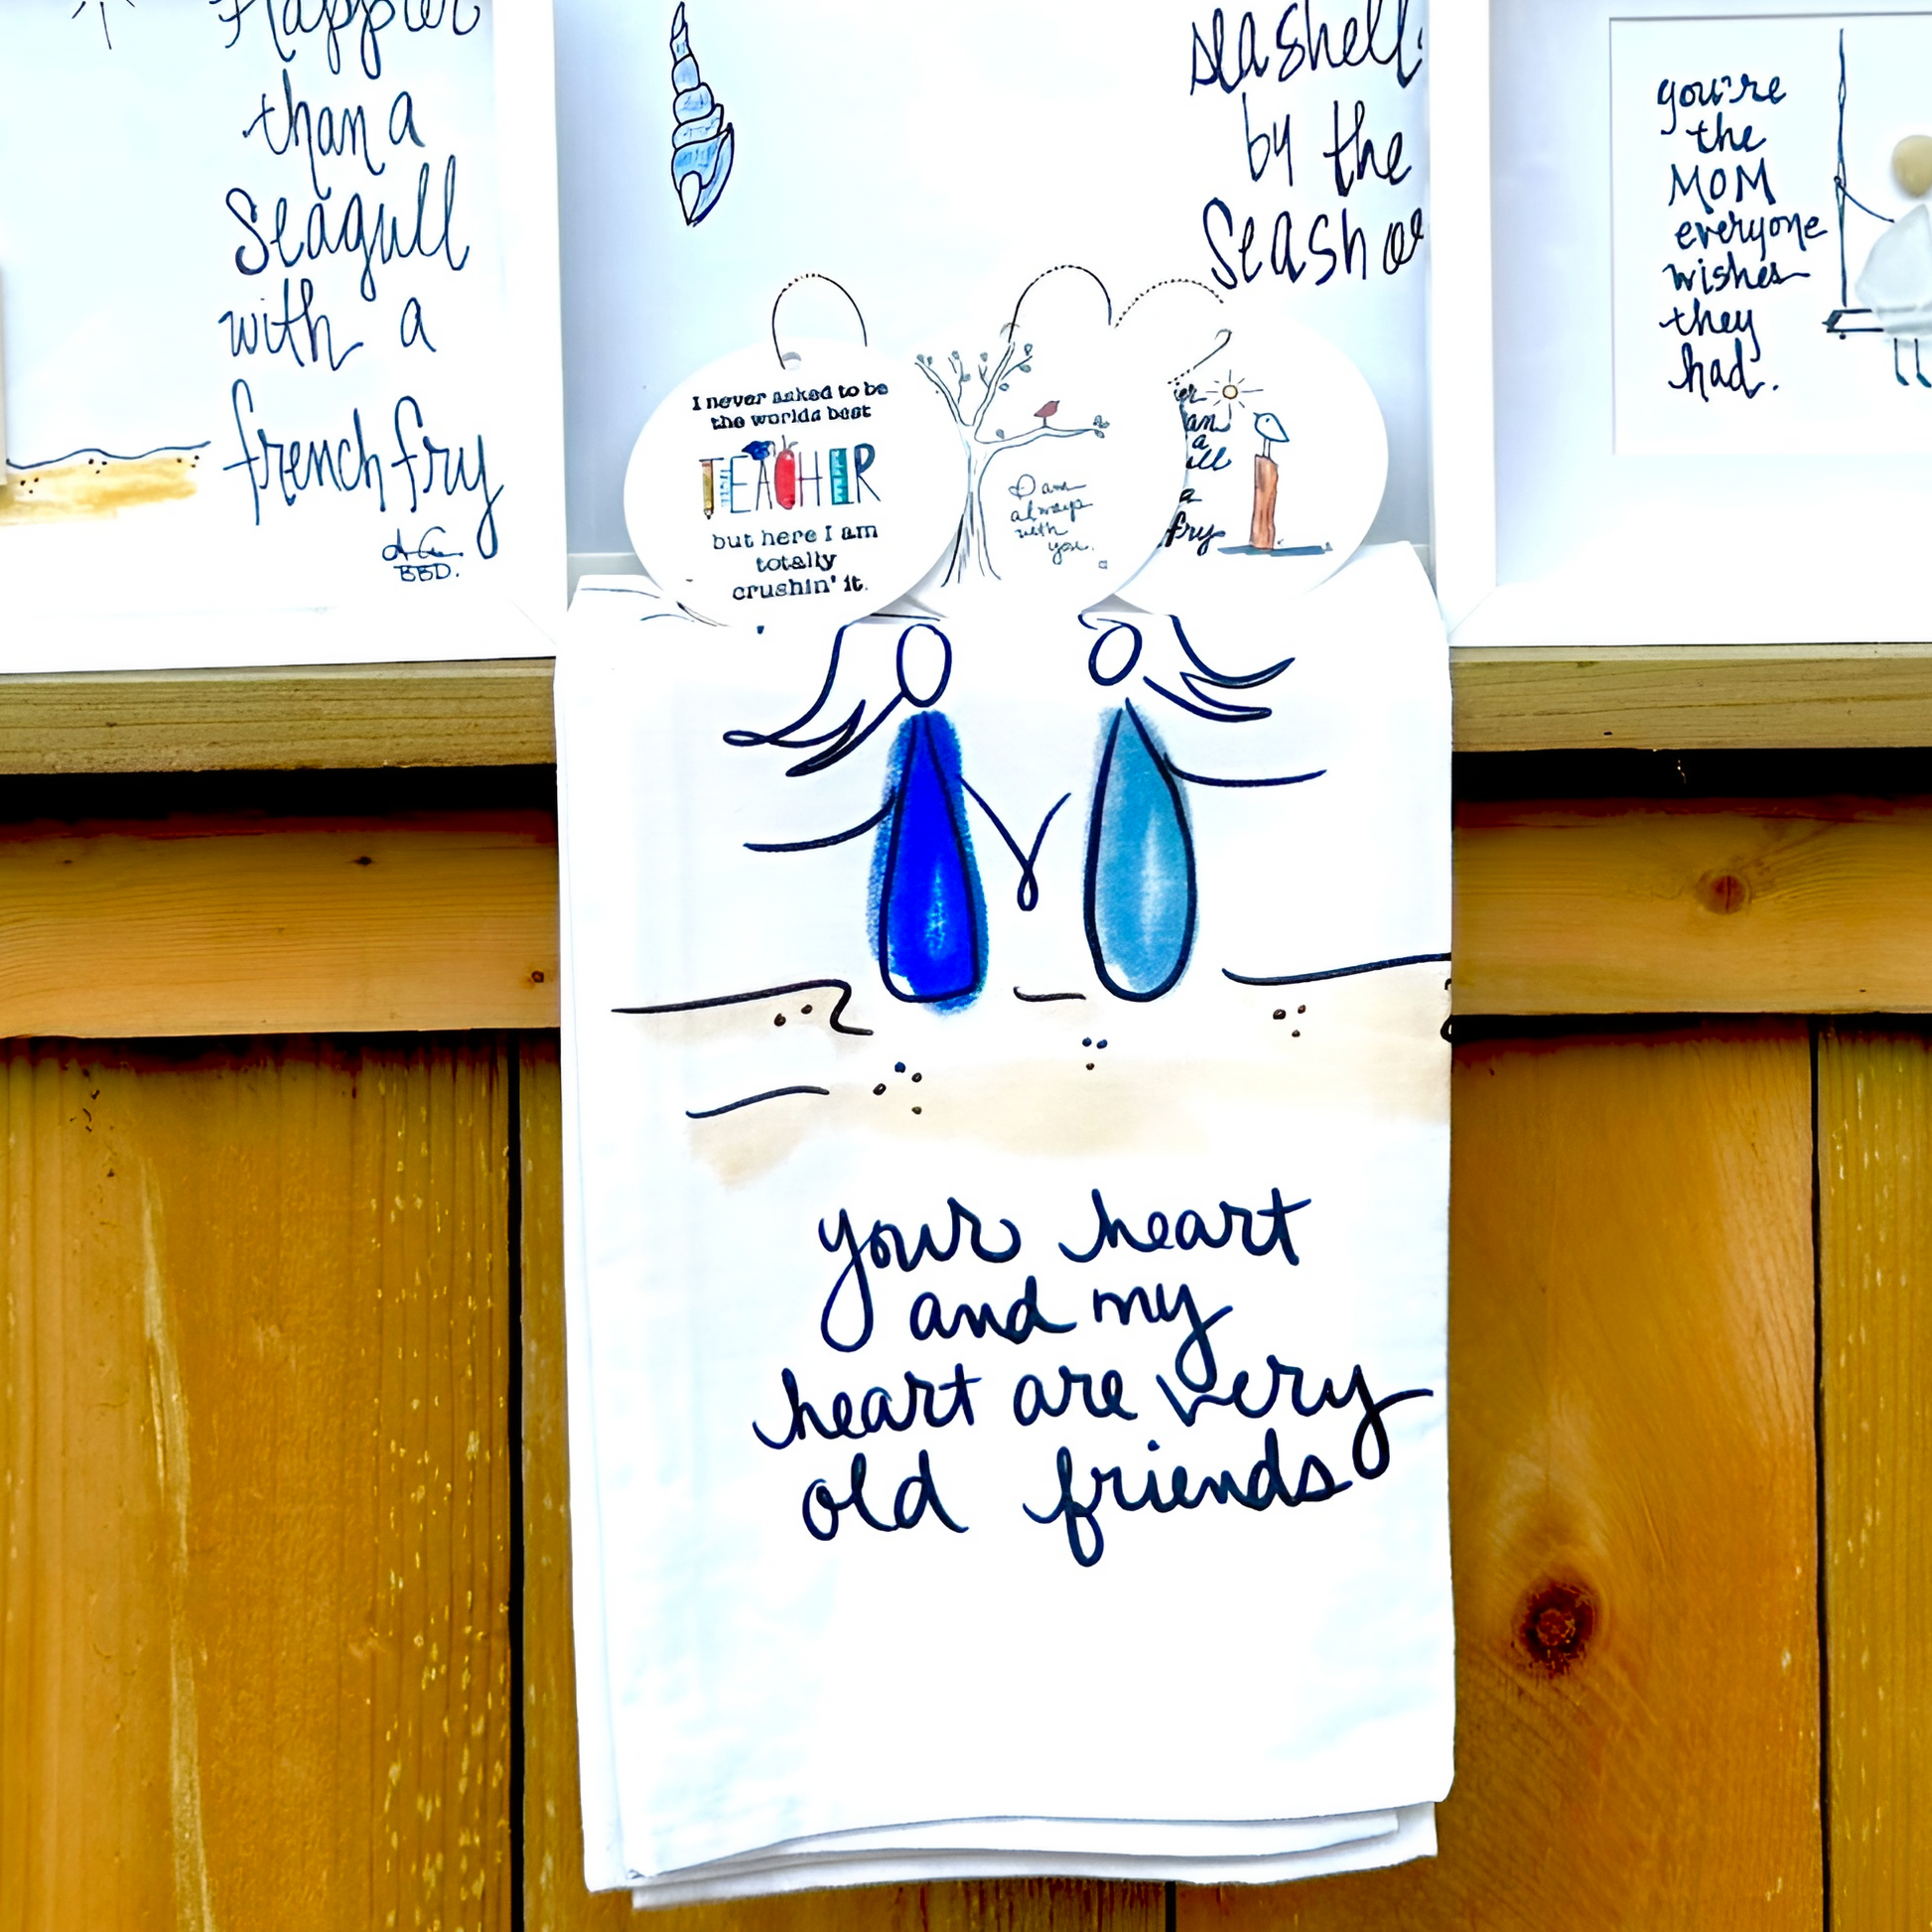 Happier
than a
Seagull
with a
french fry
BBD.
seashell
by the
Seasho
you're
the
MOM
everyone
wishes
they
had.
I never asked to be
the worlds best
TEACHER
but here I am
totally
crushin' it.
I am
always
with
you.
an
a
ill
a
fry
your heart
and my
heart are very
old friends